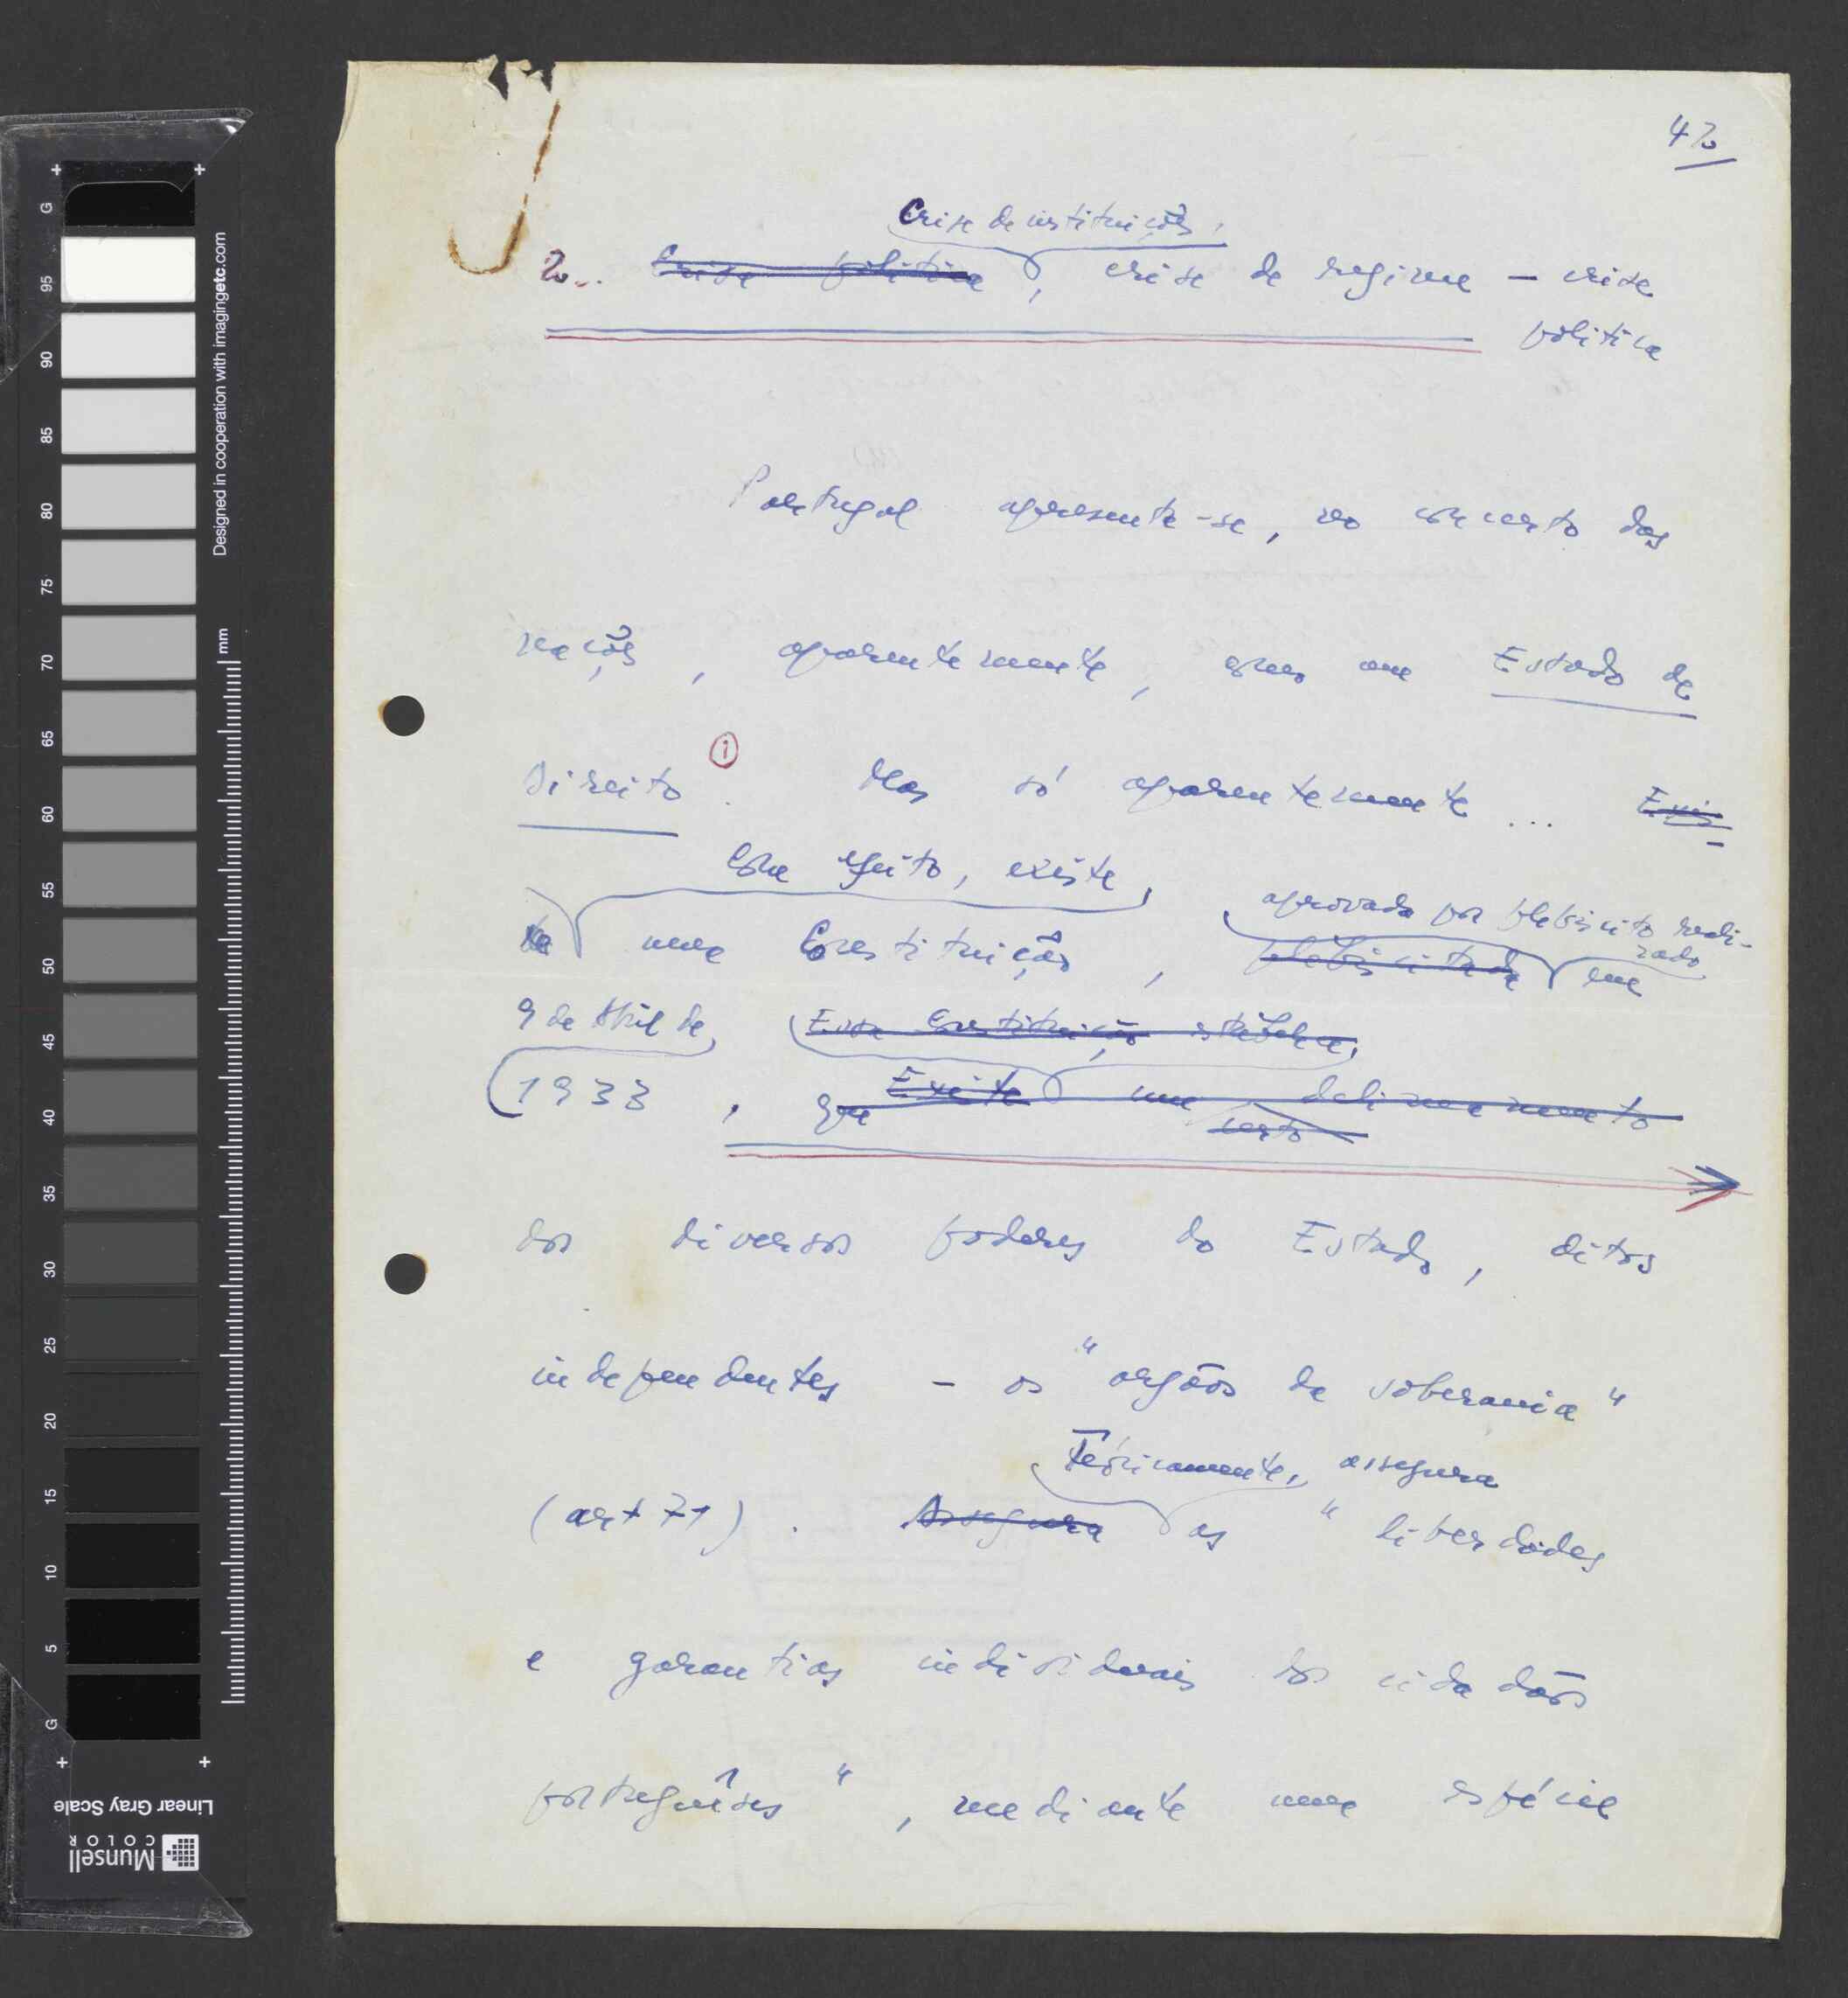 42
Crise de instituições,
2... Crise política, crise de regime — crise
política
Portugal apresenta-se, no concerto das
nações, aparentemente, como um Estado de
Direito ①. Mas só aparentemente... Exis
Com efeito, existe, aprovada por plebiscito reali-
zado
te uma Constituição, plebiscitada em
9 de Abril de Essa Constituição estabelece,
1933, que Existe um delineamento
certo
dos diversos poderes do Estado, ditos
independentes — os "orgãos de soberania"
Teóricamente, assegura
(art 71). Assegura as "liberdades
e garantias individuais dos cidadãos
portuguêses", mediante uma espécie
Designed in cooperation with imagingetc.com
mm
G 95 90 85 80 75 70 65 60 55 50 45 40 35 30 25 20 15 10 5 G
Linear Gray Scale
Munsell
COLOR